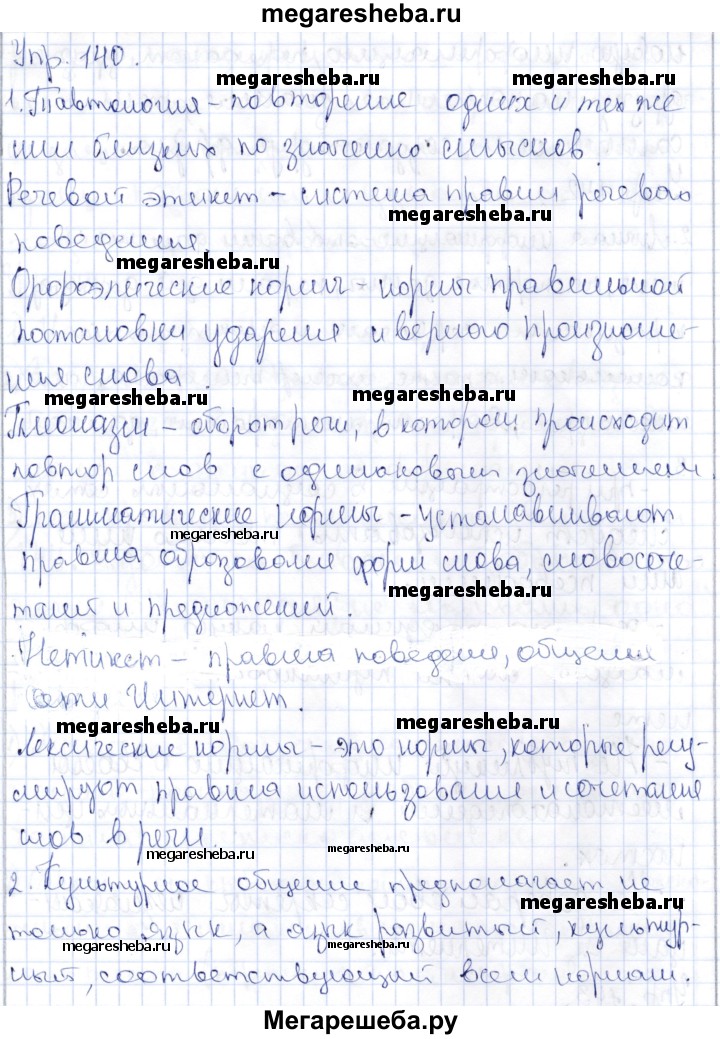 megaresheba.ru
Упр. 140.
megaresheba.ru megaresheba.ru
1. Тавтология – повторение одних и тех же
или близких по значению смыслов.
Речевой этикет – система правил речевого
megaresheba.ru
поведения.
megaresheba.ru
Орфоэпические нормы – нормы правильной
постановки ударения и верного произноше-
ния слова.
megaresheba.ru megaresheba.ru
Плеоназм – оборот речи, в котором происходит
повтор слов с одинаковым значением.
Грамматические нормы – устанавливают
megaresheba.ru megaresheba.ru
правила образования форм слова, словосоче-
megaresheba.ru
таний и предложений.
Нетикет – правила поведения, общения
сети Интернет.
megaresheba.ru megaresheba.ru
Лексические нормы – это нормы, которые регу-
лируют правила использования и сочетания
слов в речи.
megaresheba.ru megaresheba.ru
2. Культурное общение предполагает не
только язык, а язык развитый, культур-
megaresheba.ru megaresheba.ru
ный, соответствующий всем нормам.
Мегарешеба.ру